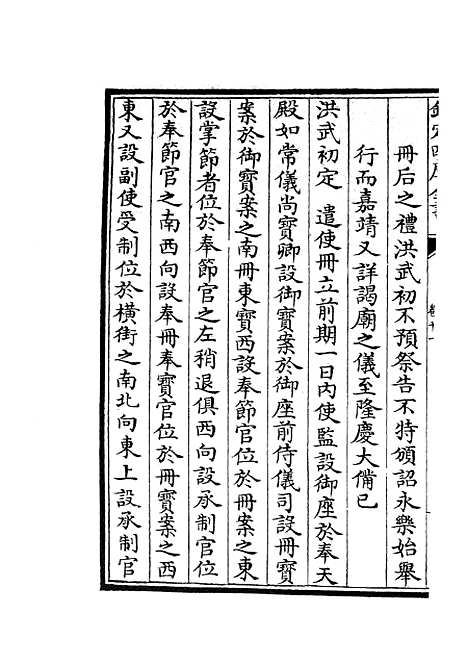 欽定四庫全書
卷十一
冊后之禮洪武初不預祭告不特頒詔永樂始舉
行而嘉靖又詳謁廟之儀至隆慶大備已
洪武初定　遣使冊立前期一日内使監設御座於奉天
殿如常儀尚寶卿設御寶案於御座前侍儀司設冊寶
案於御寶案之南冊東寶西設奉節官位於冊案之東
設掌節者位於奉節官之左稍退俱西向設承制官位
於奉節官之南西向設奉冊奉寶官位於冊寶案之西
東又設副使受制位於橫街之南北向東上設承制官